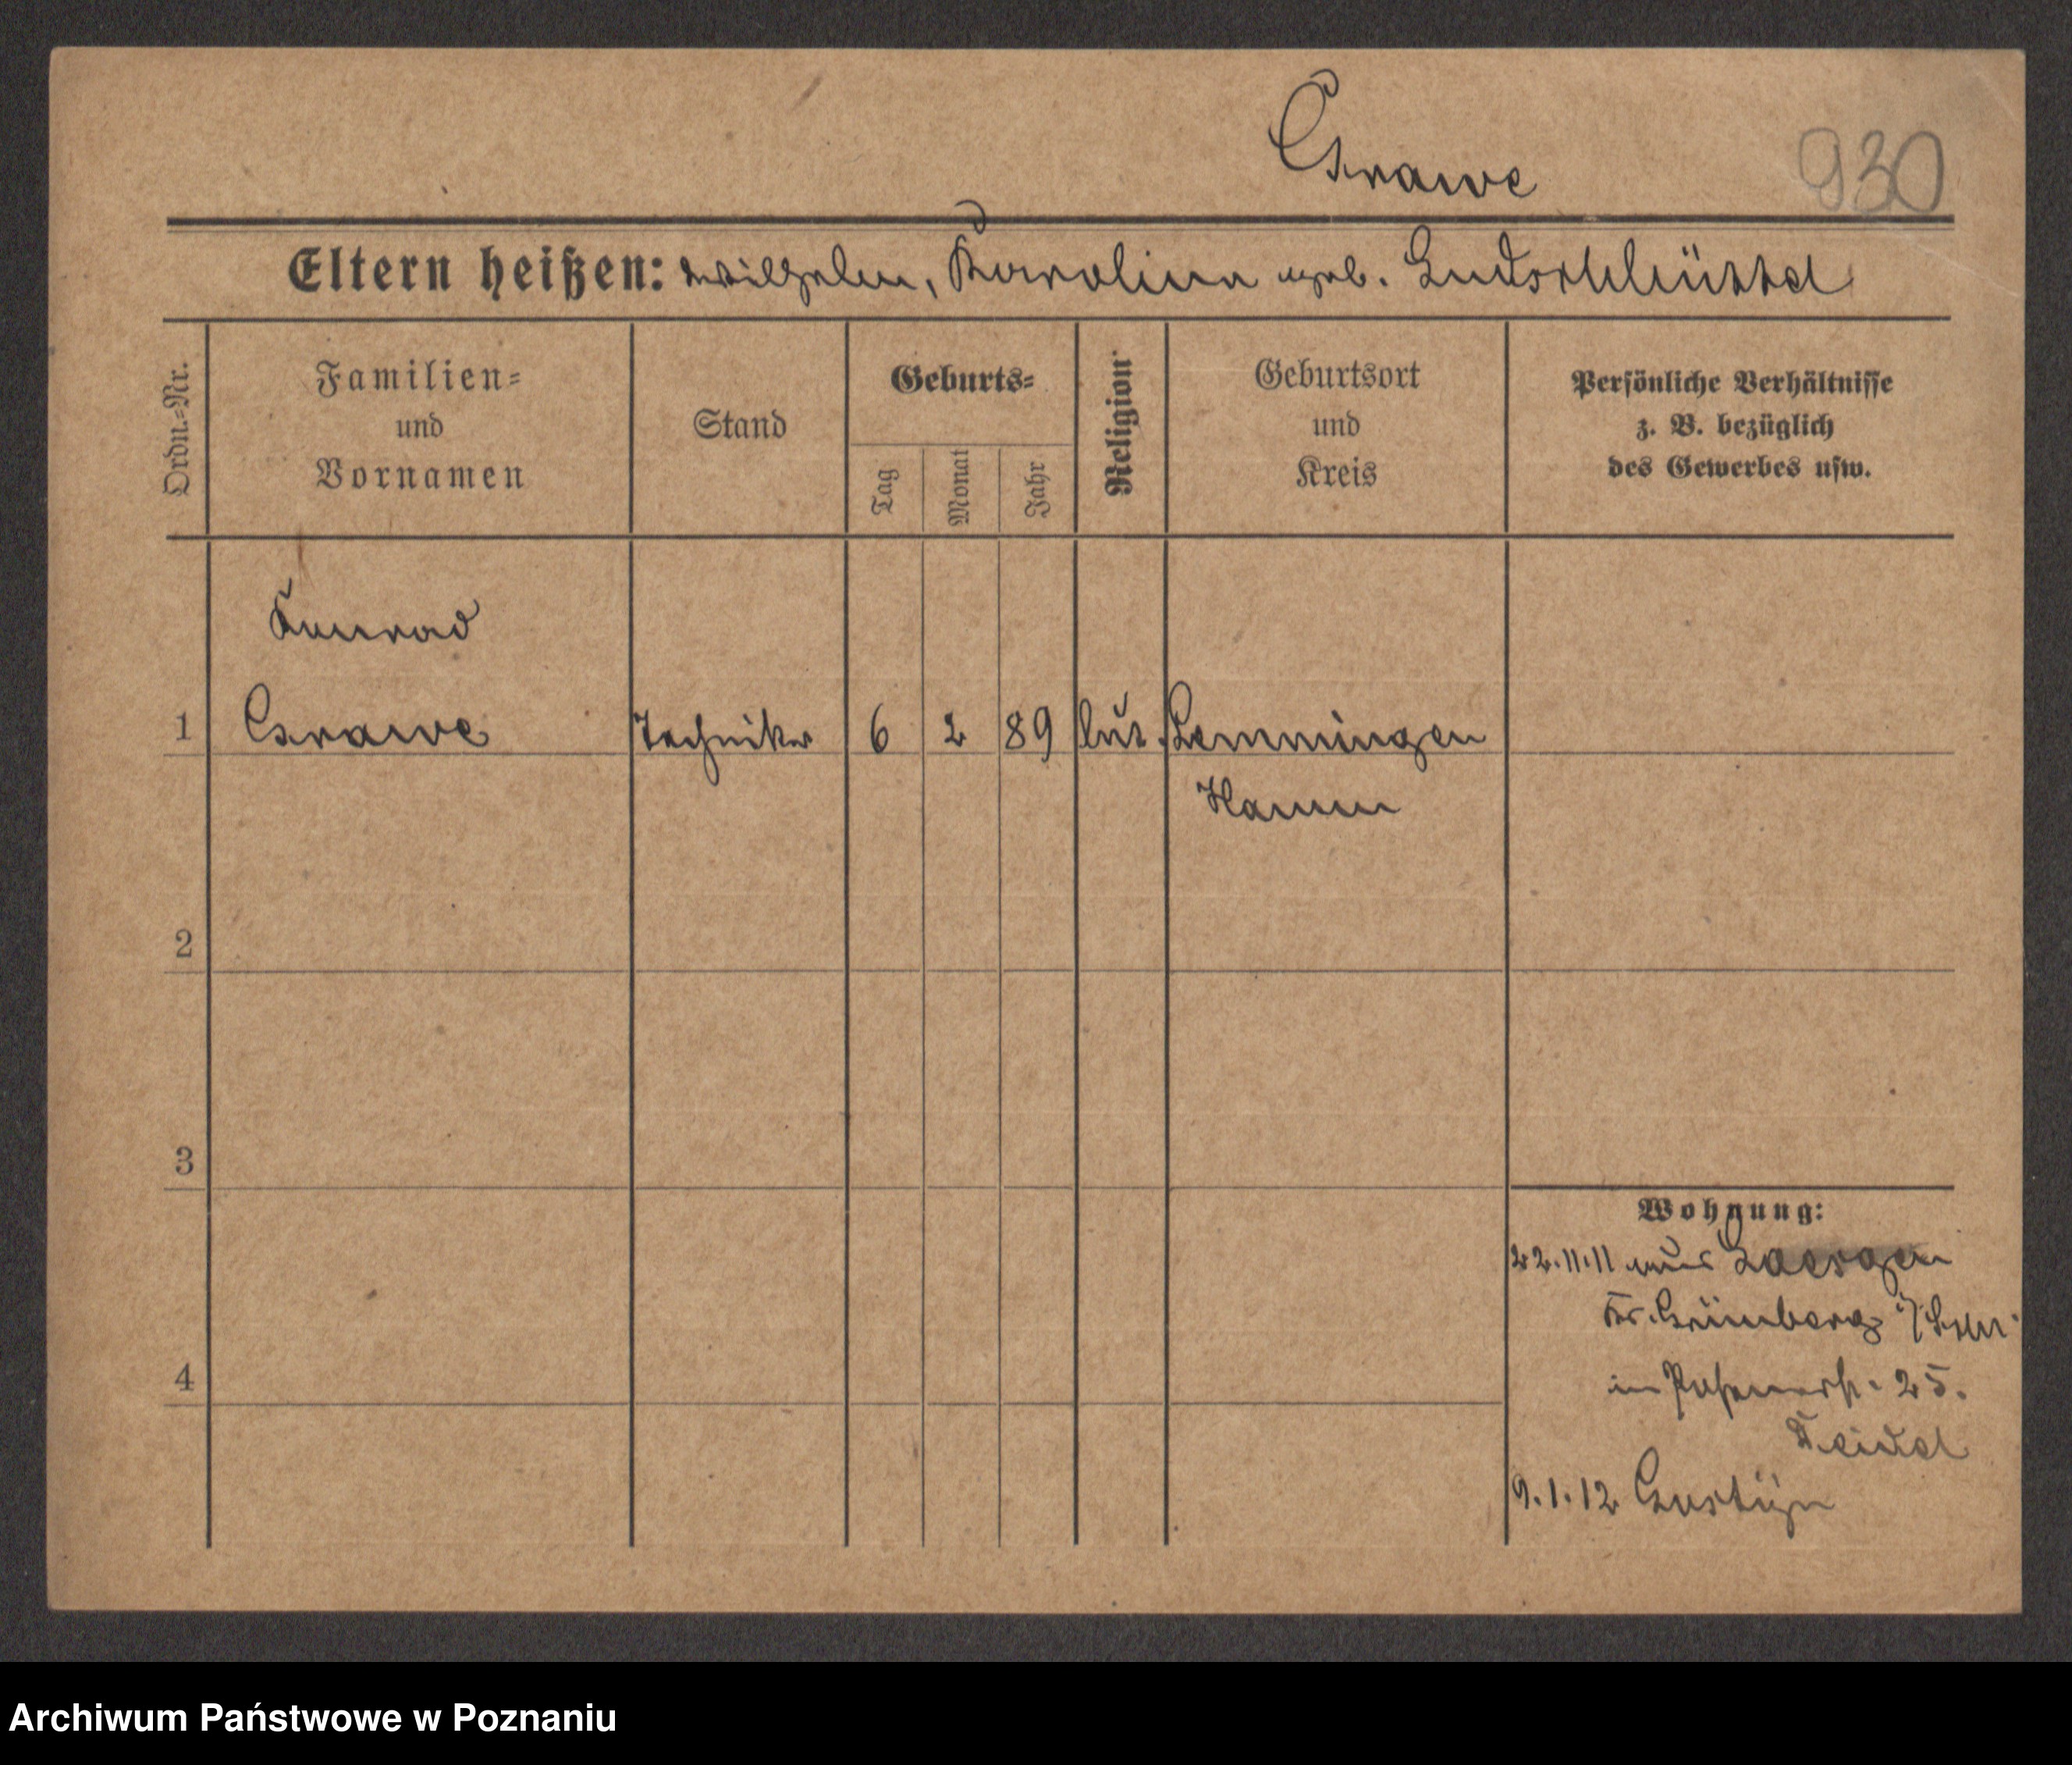 Grawe
930
Eltern heißen: Wilhelm, Karolina geb.
Ordn.=Nr.
Familien=
und
Vornamen
Stand
Geburts=
Tag
Monat
Jahr
Religion
Geburtsort
und
Kreis
Persönliche Verhältnisse
z. B. bezüglich
des Gewerbes usw.
Konrad
1 Grawe Techniker 6 2 89 lut. Lemmingen
Hamm
2
3
4
Wohnung:
22.11.11 aus
Kr. Grünberg i/Schl.
in Posenerstr. 25.
9.1.12 Gostyn
Archiwum Państwowe w Poznaniu